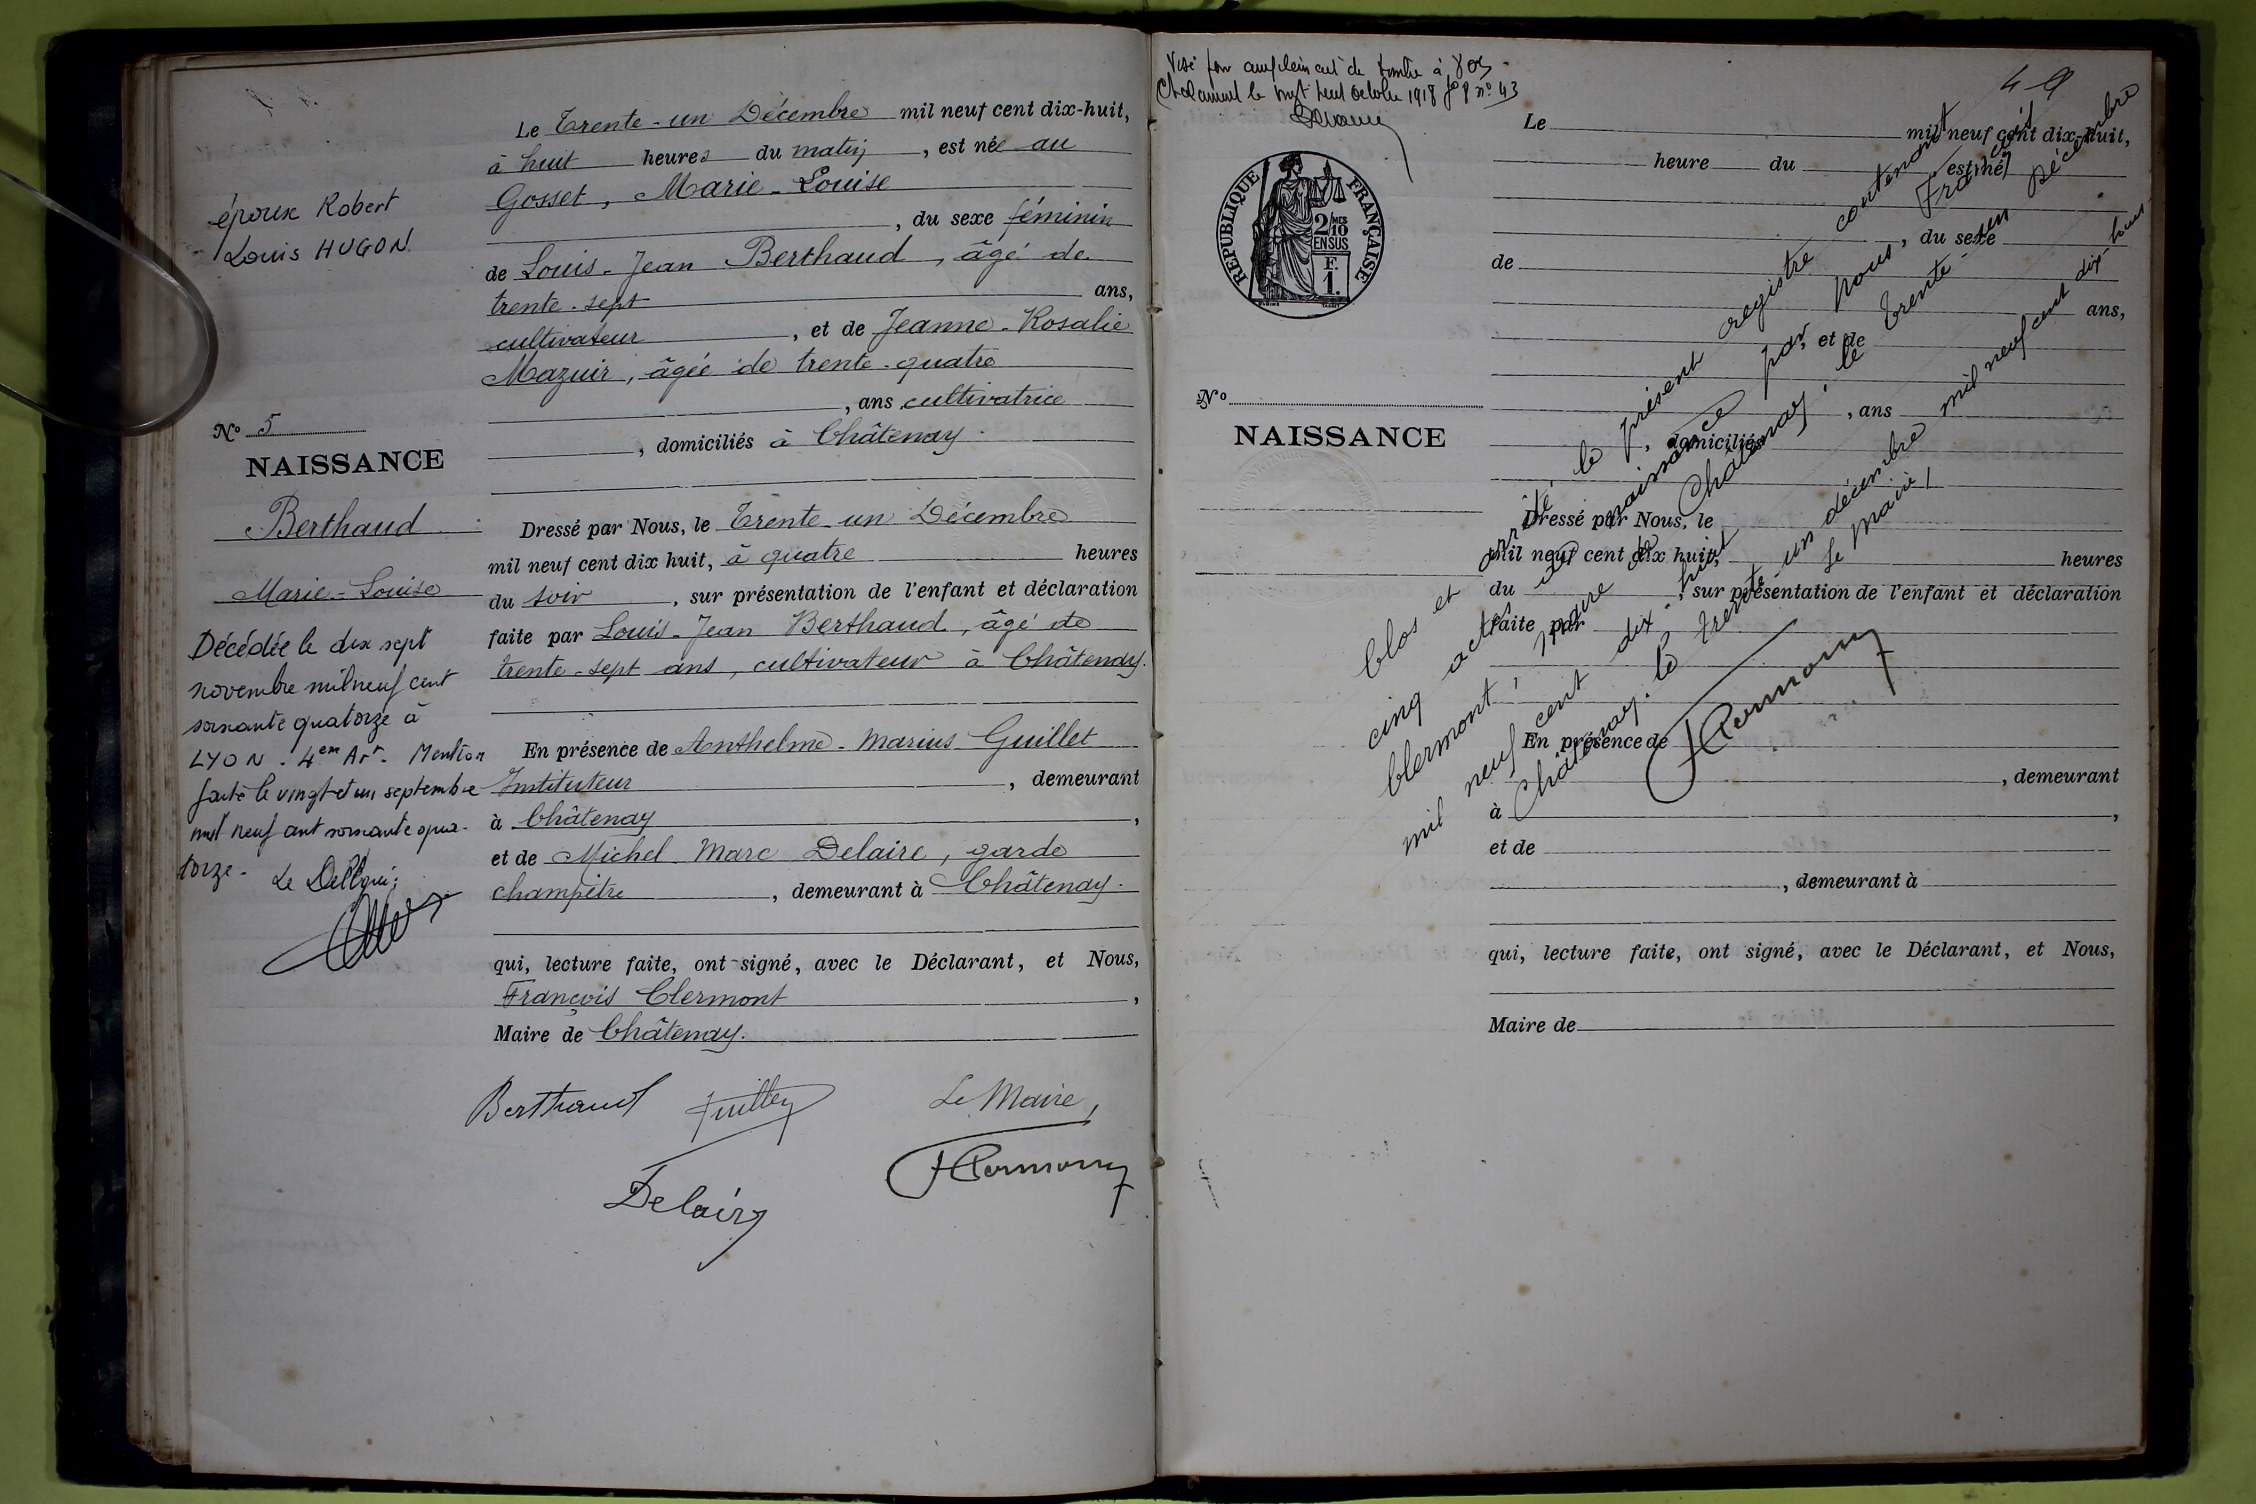 époux Robert
Louis HUGON.
Nº 5
NAISSANCE
Berthaud
Marie-Louise
Décédée le dix sept
novembre mil neuf cent
soixante quatorze à
LYON. 4em Art. Mention
faite le vingt et un septembre
mil neuf cent soixante qua-
torze.
Le
Le Trente-un Décembre mil neuf cent dix-huit,
à huit heures du matin, est née au
Gosset, Marie-Louise
, du sexe féminin
de Louis-Jean Berthaud, âgé de
trente-sept ans,
cultivateur, et de Jeanne-Rosalie
Mazuir, âgée de trente-quatre
, ans cultivatrice
, domiciliés à Châtenay.
Dressé par Nous, le Trente-un Décembre
mil neuf cent dix huit, à quatre heures
du soir, sur présentation de l'enfant et déclaration
faite par Louis-Jean Berthaud, âgé de
trente-sept ans, cultivateur à Châtenay.
En présence de Anthelme-Marius Guillet
Instituteur, demeurant
à Châtenay,
et de Michel Marc Delaire, garde
champêtre, demeurant à Châtenay.
qui, lecture faite, ont signé, avec le Déclarant, et Nous,
François Clermont,
Maire de Châtenay.
Berthaud Guillet Le Maire,
Delaire FClermont
Visé pour complément de timbre à
Chalamont le vingt huit Octobre 1918 fº 8 nº 43
49
RÉPUBLIQUE FRANÇAISE
2/10 MES
EN SUS
F.
1.
Nº
NAISSANCE
Le mil neuf cent dix-huit,
heure du est né
, du sexe
de
ans,
, et de
, ans
, domiciliés
Dressé par Nous, le
mil neuf cent dix huit, heures
du , sur présentation de l'enfant et déclaration
faite par
En présence de
, demeurant
à ,
et de
, demeurant à
qui, lecture faite, ont signé, avec le Déclarant, et Nous,
Maire de
Clos et arrêté le présent registre contenant
cinq actes de naissance par Nous, François
Clermont, maire de Châtenay, le trente-un Décembre
mil neuf cent dix-huit
Châtenay, le trente-un décembre mil neuf cent dix-huit
Le Maire,
FClermont